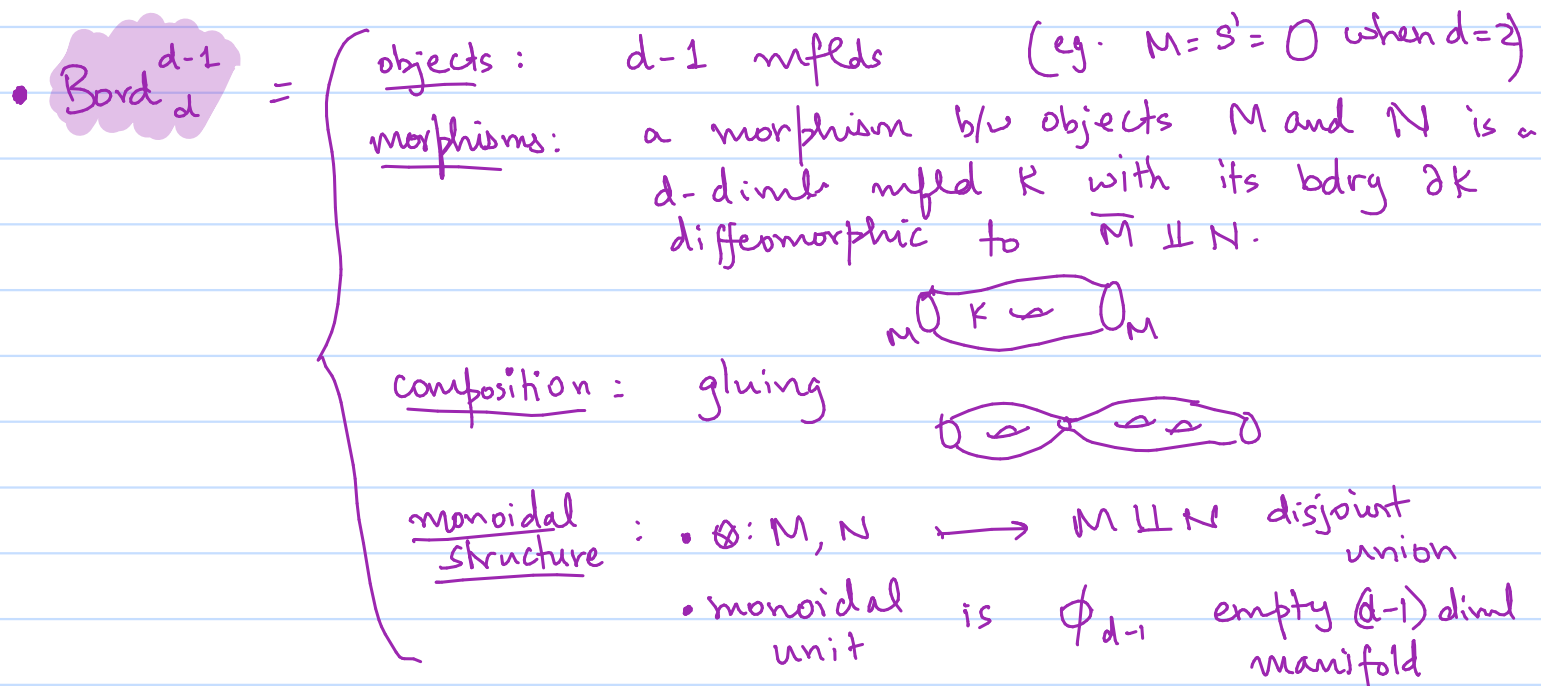 • Bord_d^{d-1} = objects : d-1 mflds (eg. M = S^1 = O when d=2)
morphisms : a morphism b/w objects M and N is a
d-diml mfld K with its bdry ∂K
diffeomorphic to M̅ ⨿ N.
M K M
composition : gluing
monoidal structure : • ⊗ : M, N ⟶ M ⨿ N disjoint union
• monoidal unit is ϕ_{d-1} empty (d-1) diml manifold